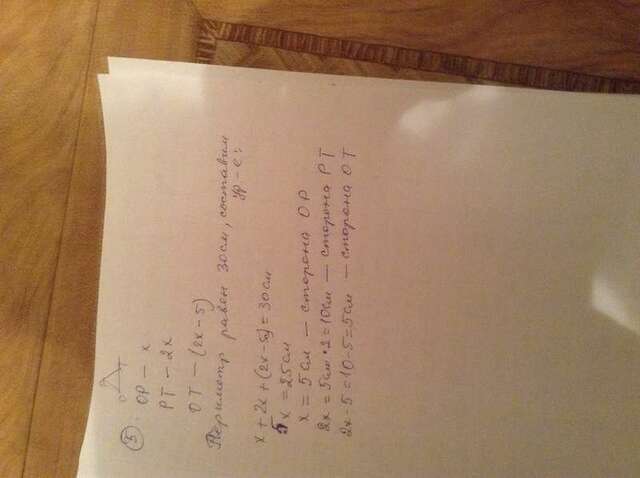 5
OP — x
PT — 2x
OT — (2x-5)
Периметр равен 30см, составим
ур-е:
x + 2x + (2x-5) = 30см
5x = 25см
x = 5см — сторона OP
2x = 5см*2 = 10см — сторона PT
2x-5 = 10-5 = 5см — сторона OT